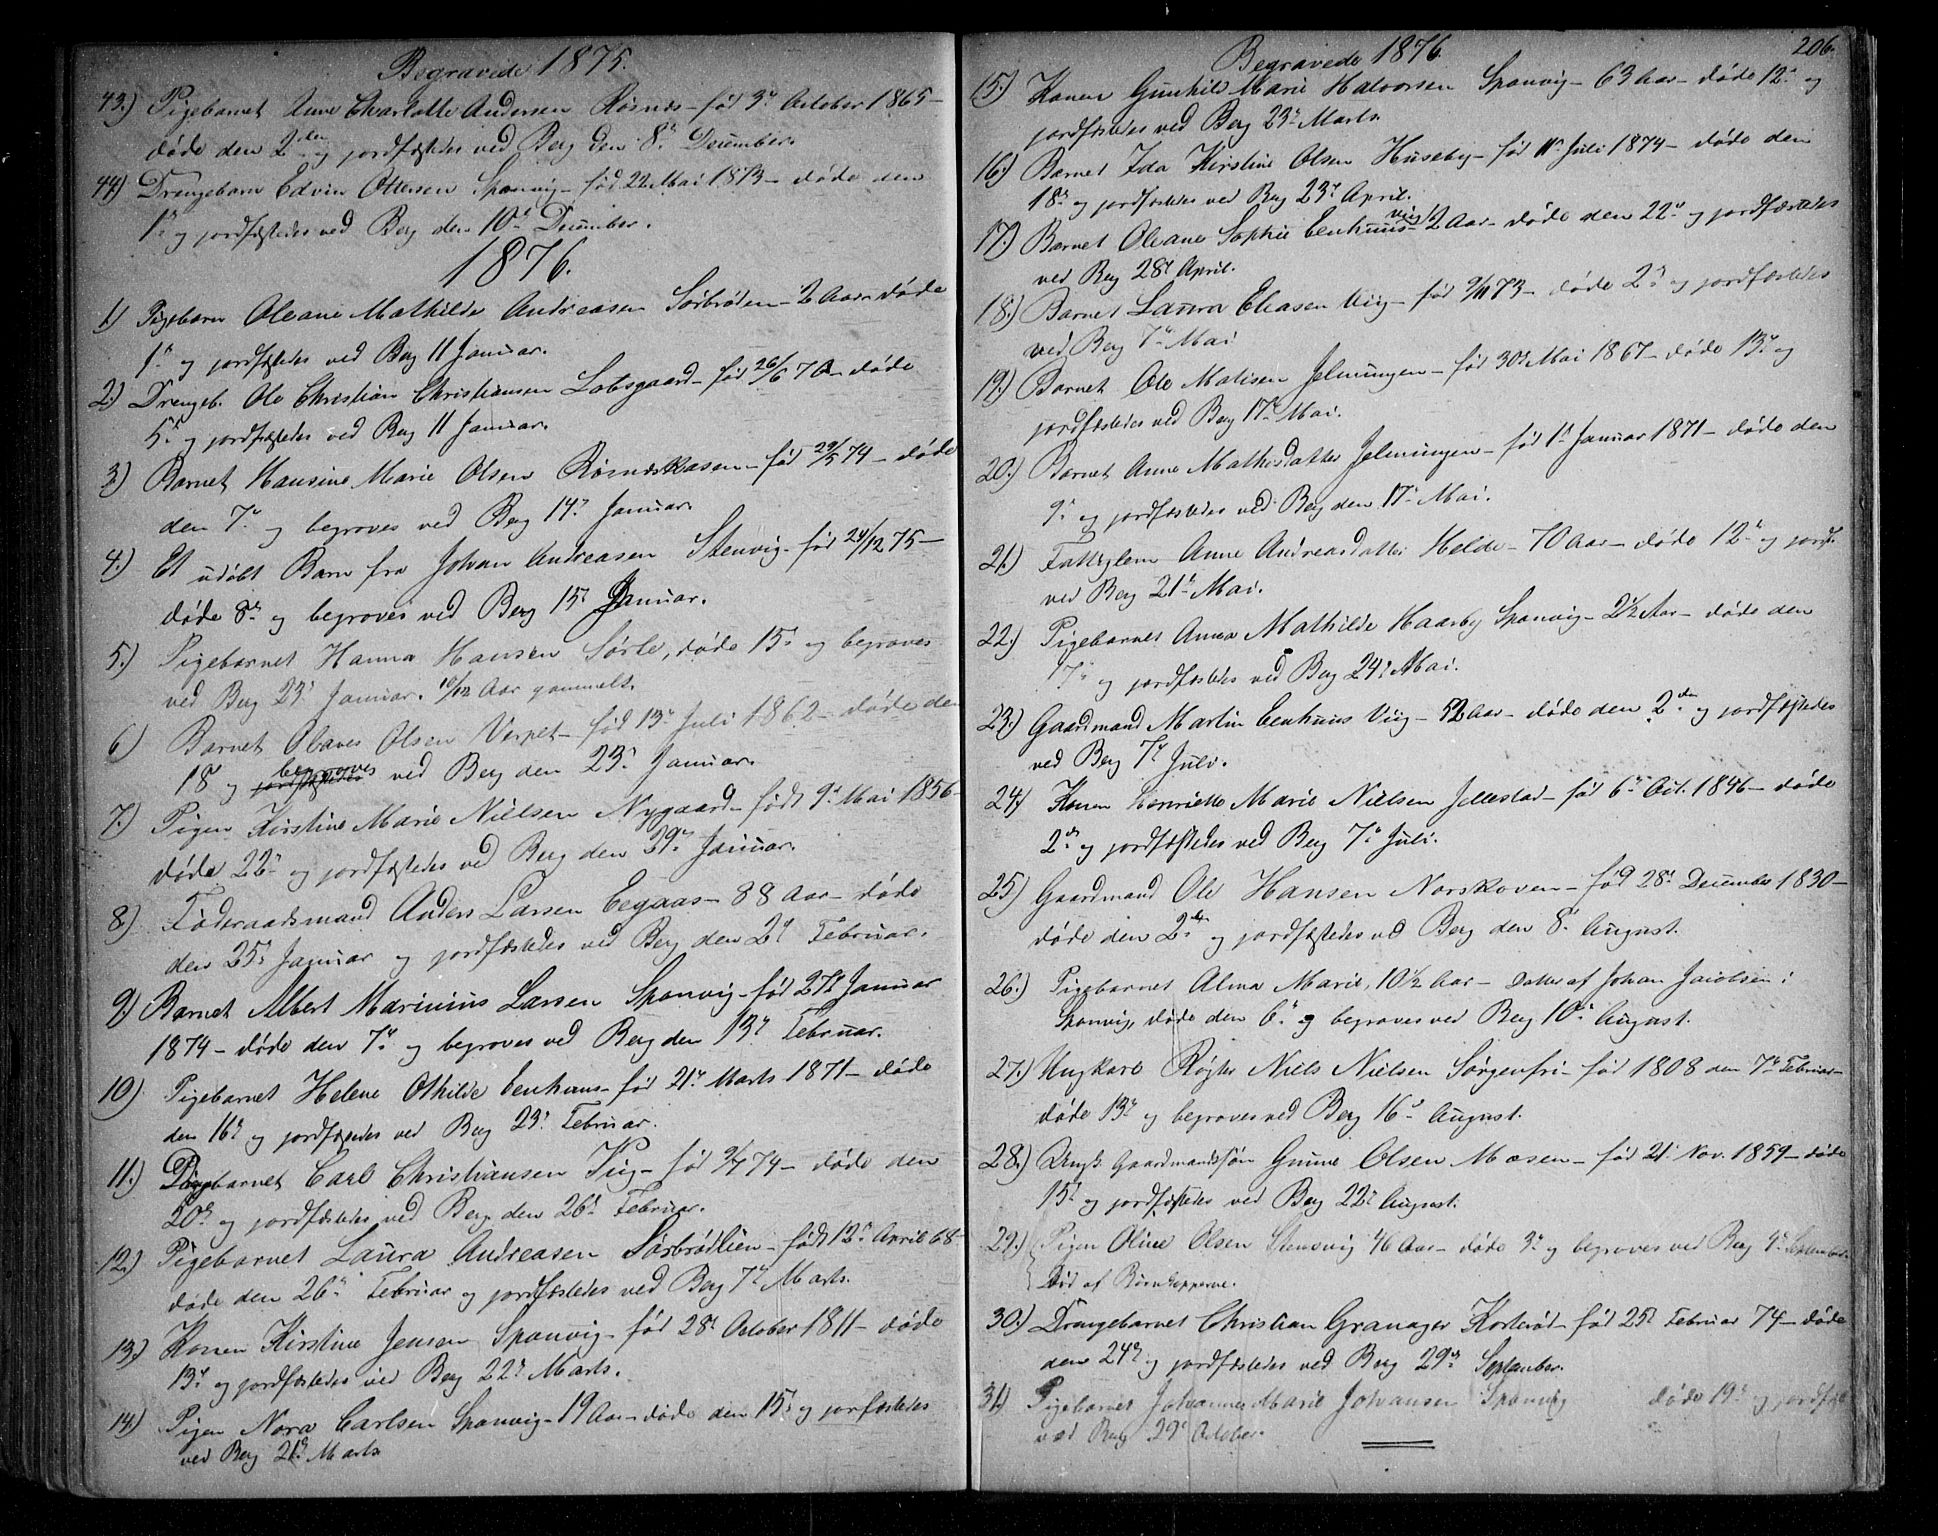 Begravede 1875.
43.) Pigebarnet Anne Charlotte Andersen Rosnæs - fød 3die October 1865 -
døde den 2den og jordfæstedes ved Berg den 8de December.
44.) Drengebarn Edvin Ottersen Sponvig - fød 22 Mai 1873 - døde den
1ste og jordfæstedes ved Berg den 10de December.
1876.
1.) Pigebarn Oleane Mathilde Andreasen Sørbrøden - 2 Aar - døde
1ste og jordfæstedes ved Berg 11 Januar.
2.) Drengeb. Ole Christian Christiansen Labsgaard - fød 26/6 70 - døde
5te og jordfæstedes ved Berg 11 Januar.
3.) Barnet Hansine Marie Olsen Røsnæskasen - fød 29/5 74 - døde
den 7de og begroves ved Berg 14de Januar.
4.) Et udøbt Barn fra Johan Andreasen Stenvig - fød 24/12 75 -
døde 8de og begroves ved Berg 15de Januar.
5.) Pigebarnet Hanna Hansen Sørle, døde 15de og begroves
ved Berg 23de Januar. 10/12 Aar gammelt.
6.) Barnet Olaves Olsen Verpet - fød 13de Juli 1862 - døde den
18de og begroves ved Berg den 23de Januar.
7.) Pigen Kirstine Marie Nielsen Nygaard - født 9de Mai 1856 -
døde 22de og jordfæstedes ved Berg den 29de Januar.
8.) Føderaadsmand Anders Larsen Eegaas - 88 Aar - døde
den 25de Januar og jordfæstedes ved Berg den 2den Februar.
9.) Barnet Albert Marinius Larsen Sponvig - fød 27de Januar
1874 - døde den 7de og begroves ved Berg den 13de Februar.
10.) Pigebarnet Helene Othilde Eenhuus - fød 21de Marts 1871 - døde
den 16de og jordfæstedes ved Berg 23de Februar.
11.) Pigebarnet Carl Christiansen Viig - fød 9/7 74 - døde den
20de og jordfæstedes ved Berg den 26de Februar.
12.) Pigebarnet Laura Andreasen Sørbrødlien - født 12te April 68 -
døde den 26de Februar og jordfæstedes ved Berg 7de Marts.
13.) Konen Kirstine Jensen Sponvig - fød 28de October 1811 - døde
13de og jordfæstedes ved Berg 22de Marts.
14.) Pigen Nora Carlsen Sponvig - 19 Aar - døde den 15de og jorfæstedes
ved Berg 21de Marts
Begravede 1876.
206.
15.) Konen Gunhild Marie Halvorsen Sponvig - 63 Aar - døde 12te og
jordfæstedes ved Berg 23de Marts.
16.) Barnet Ida Kirstine Olsen Huseby - fød 11te Juli 1874 - døde den
18de og jordfæstedes ved Berg 23de April.
17.) Barnet Oleane Sophie Eenhuus viig - 2 Aar - døde den 22de og jordfæstedes
ved Berg 28de April.
18.) Barnet Laura Eliasen Viig - fød 9/11 73 - døde 2den og jordfæstedes
ved Berg 7de Mai
19.) Barnet Ole Matisen Jelmungen - fød 30te Mai 1867 - døde 13de og
jordfæstedes ved Berg 17de Mai.
20.) Barnet Anne Mathisdatter Jelmungen - fød 1ste Januar 1871 - døde den
9de og jordfæstedes ved Berg den 17de Mai.
21.) Fattiglem Anne Andreasdatter Helde - 70 Aar - døde 12te og jordf.
ved Berg 21de Mai.
22.) Pigebarnet Anna Mathilde Haarby Sponvig - 2 1/2 Aar - døde den
17de og jordfæstedes ved Berg 24de Mai.
23.) Gaardmand Martin Eenhuus Viig - 52 Aar - døde den 2den og jordfæstedes
ved Berg 7de Juli.
24.) Konen Henriette Marie Nielsen Jellestad - fød 6te Oct. 1846 - døde
2den og jordfæstedes ved Berg 7de Juli.
25.) Gaardmand Ole Hansen Norskoven - fød 28de December 1830 -
døde den 2den og jordfæstedes ved Berg den 8de August.
26.) Pigebarnet Alma Marie, 10 1/2 Aar - Datter af Johan Jacobsen i
Sponvig, døde den 6te og begroves ved Berg 10de August.
27.) Ungkarl Røgter Niels Nielsen Sørgenfri - fød 1808 den 7de Februar -
døde 13de og begroves ved Berg 16de August.
28.) Ungk. Gaardmandssøn Gunne Olsen Mosen - fød 21de Nov. 1859 - døde
15de og jordfæstedes ved Berg 22de August.
29.) Pigen Oline Olsen Stensvig 46 Aar - døde 3de og begroves ved Berg 9de September.
Død af Børnkopperne.
30.) Drengebarnet Christian Granager Korterød - fød 25de Februar 74 - døde
den 24de og jordfæstedes ved Berg 29de September.
31.) Pigebarnet Johanne Marie Johansen Sponvig døde 19de og jordfæst
ved Berg 29de October.